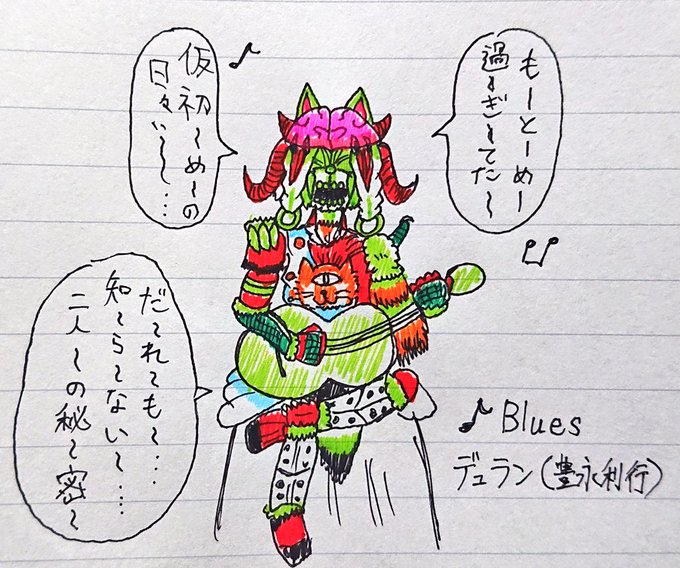 もーとーめー
過〜ぎ〜てた〜
仮初〜め〜の
日々い〜〜…
だ〜れ〜も〜…
知〜ら〜ない〜……
二人〜の秘〜密〜
♪Blues
デュラン(豊永利行)